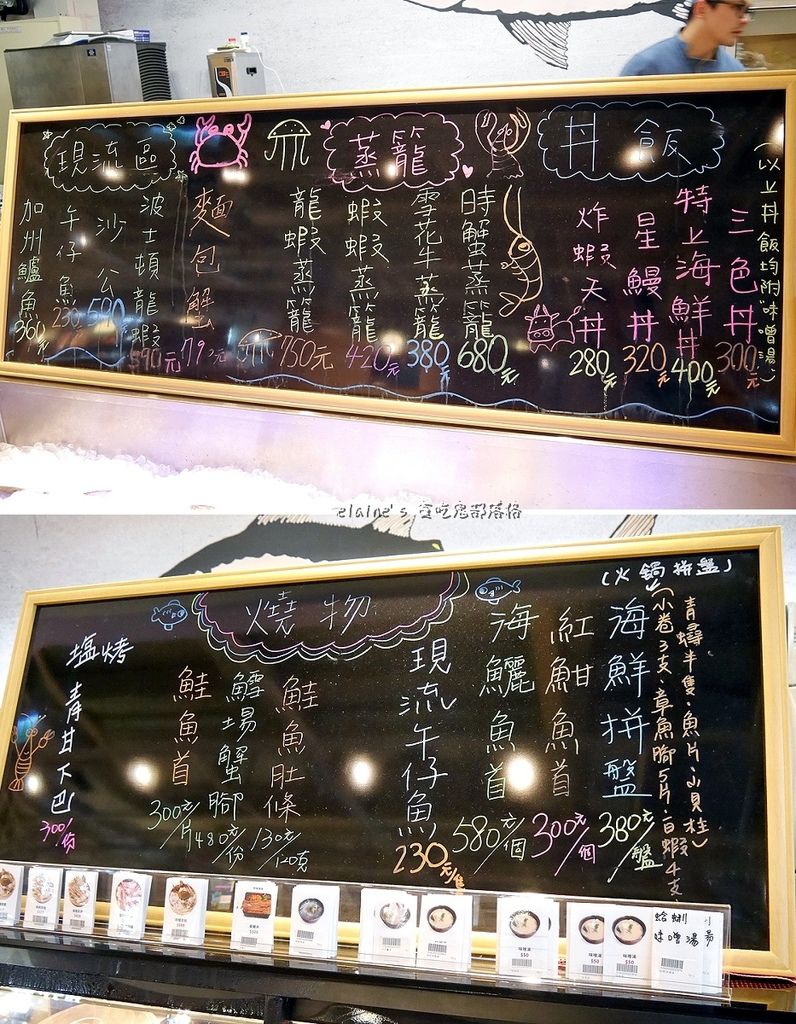 丼飯
(以上丼飯均附味噌湯)
三色丼 300元
特上海鮮丼 400元
星鰻丼 320元
炸蝦天丼 280元
蒸籠
時蟹蒸籠 680元
雪花牛蒸籠 380元
蝦蝦蒸籠 420元
龍蝦蒸籠 750元
現流區
麵包蟹
波士頓龍蝦 590元
沙公 590
午仔魚 230元
加州鱸魚 360元
elaine's 貪吃鬼部落格
燒物
(火鍋拼盤)
青蟳半隻、魚片、山貝柱)
(小卷3支、章魚腳5片、白蝦4支、
海鮮拼盤 380元/盤
紅魽魚首 300元/個
海鱺魚首 580元/個
現流午仔魚 230元/隻
鮭魚肚條 130元/120克
鱈場蟹腳 480元/份
鮭魚首 300元/片
塩烤
青甘下巴 300/份
味噌湯
$50
味噌湯
$50
味噌湯
$50
蛤蜊
味噌湯